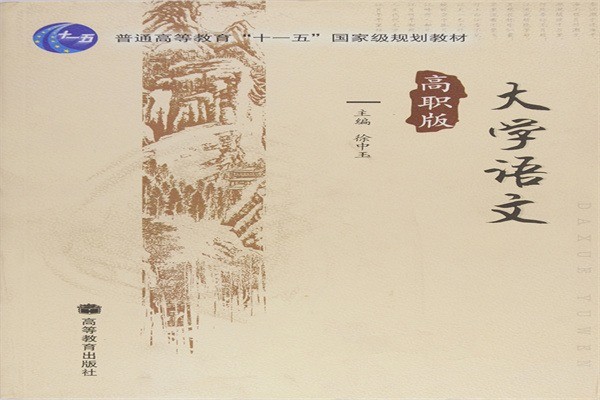 十一五
普通高等教育“十一五”国家级规划教材
大学语文
DAXUE YUWEN
高职版
主编 徐中玉
高等教育出版社